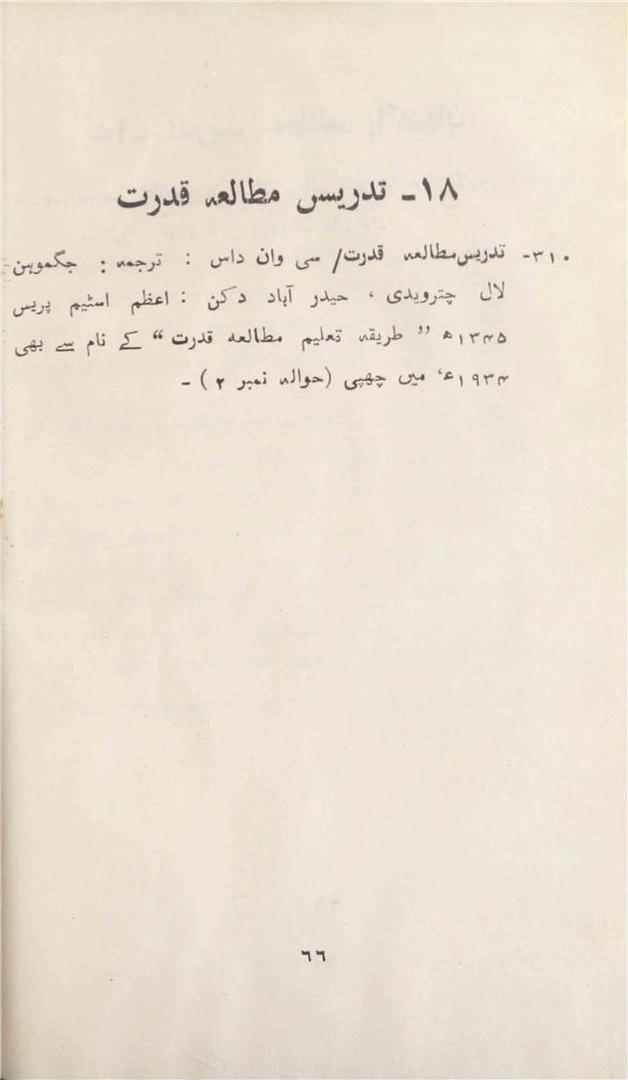 ۱۸۔ تدریس مطالعہ قدرت
۳۱۰۔ تدریس مطالعہ قدرت/ سی وان داس : ترجمہ : جگموہن
لال چترویدی ، حیدر آباد دکن : اعظم اسٹیم پریس
۱۳۴۵ھ ” طریقہ تعلیم مطالعہ قدرت “ کے نام سے بھی
۱۹۳۴ء، میں چھپی (حوالہ نمبر ۲) ۔
٦٦